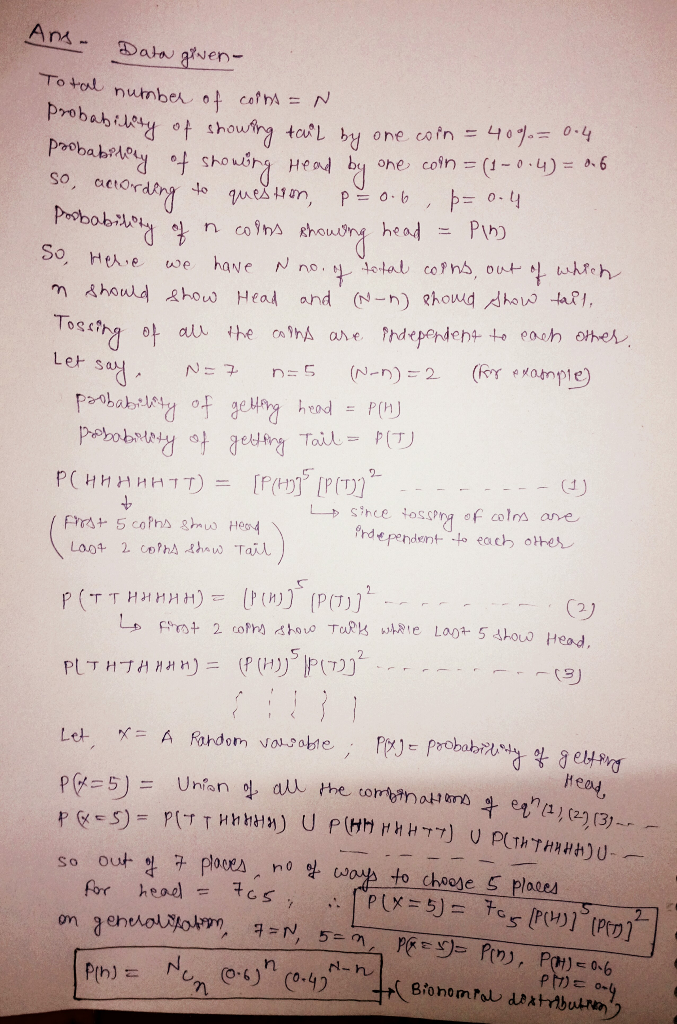 Ans - Data given -
Total number of coins = N
Probability of showing tail by one coin = 40% = 0.4
Probability of showing Head by one coin = (1-0.4) = 0.6
So, according to question, P = 0.6, p = 0.4
Probability of n coins showing head = P(n)
So, Here we have N no. of total coins, out of which
n should show Head and (N-n) should show tail.
Tossing of all the coins are independent to each other.
Let say, N=7 n=5 (N-n)=2 (for example)
probability of getting head = P(H)
probability of getting Tail = P(T)
P(HHHHHTT) = [P(H)]^5 [P(T)]^2 --------- (1)
↓ ↳ since tossing of coins are
(First 5 coins show Head independent to each other
Last 2 coins show Tail)
P(TTHHHHH) = [P(H)]^5 [P(T)]^2 --------- (2)
↳ First 2 coins show Tails while Last 5 show Head.
P(THTHHHH) = [P(H)]^5 [P(T)]^2 --------- (3)
Let, X = A Random variable ; P(X) = probability of getting
Head,
P(X=5) = Union of all the combinations of eqn (1), (2), (3)---
P(X=5) = P(TTHHHHH) U P(HHHHHTT) U P(THTHHHH) U --
so out of 7 places, no of ways to choose 5 places
for head = 7C5 ; ∴ P(X=5) = 7C5 [P(H)]^5 [P(T)]^2
on generalization, 7=N, 5=n, P(X=5)= P(n), P(H)=0.6
P(T)=0.4
P(n) = NCn (0.6)^n (0.4)^N-n → (Bionomial distribution)